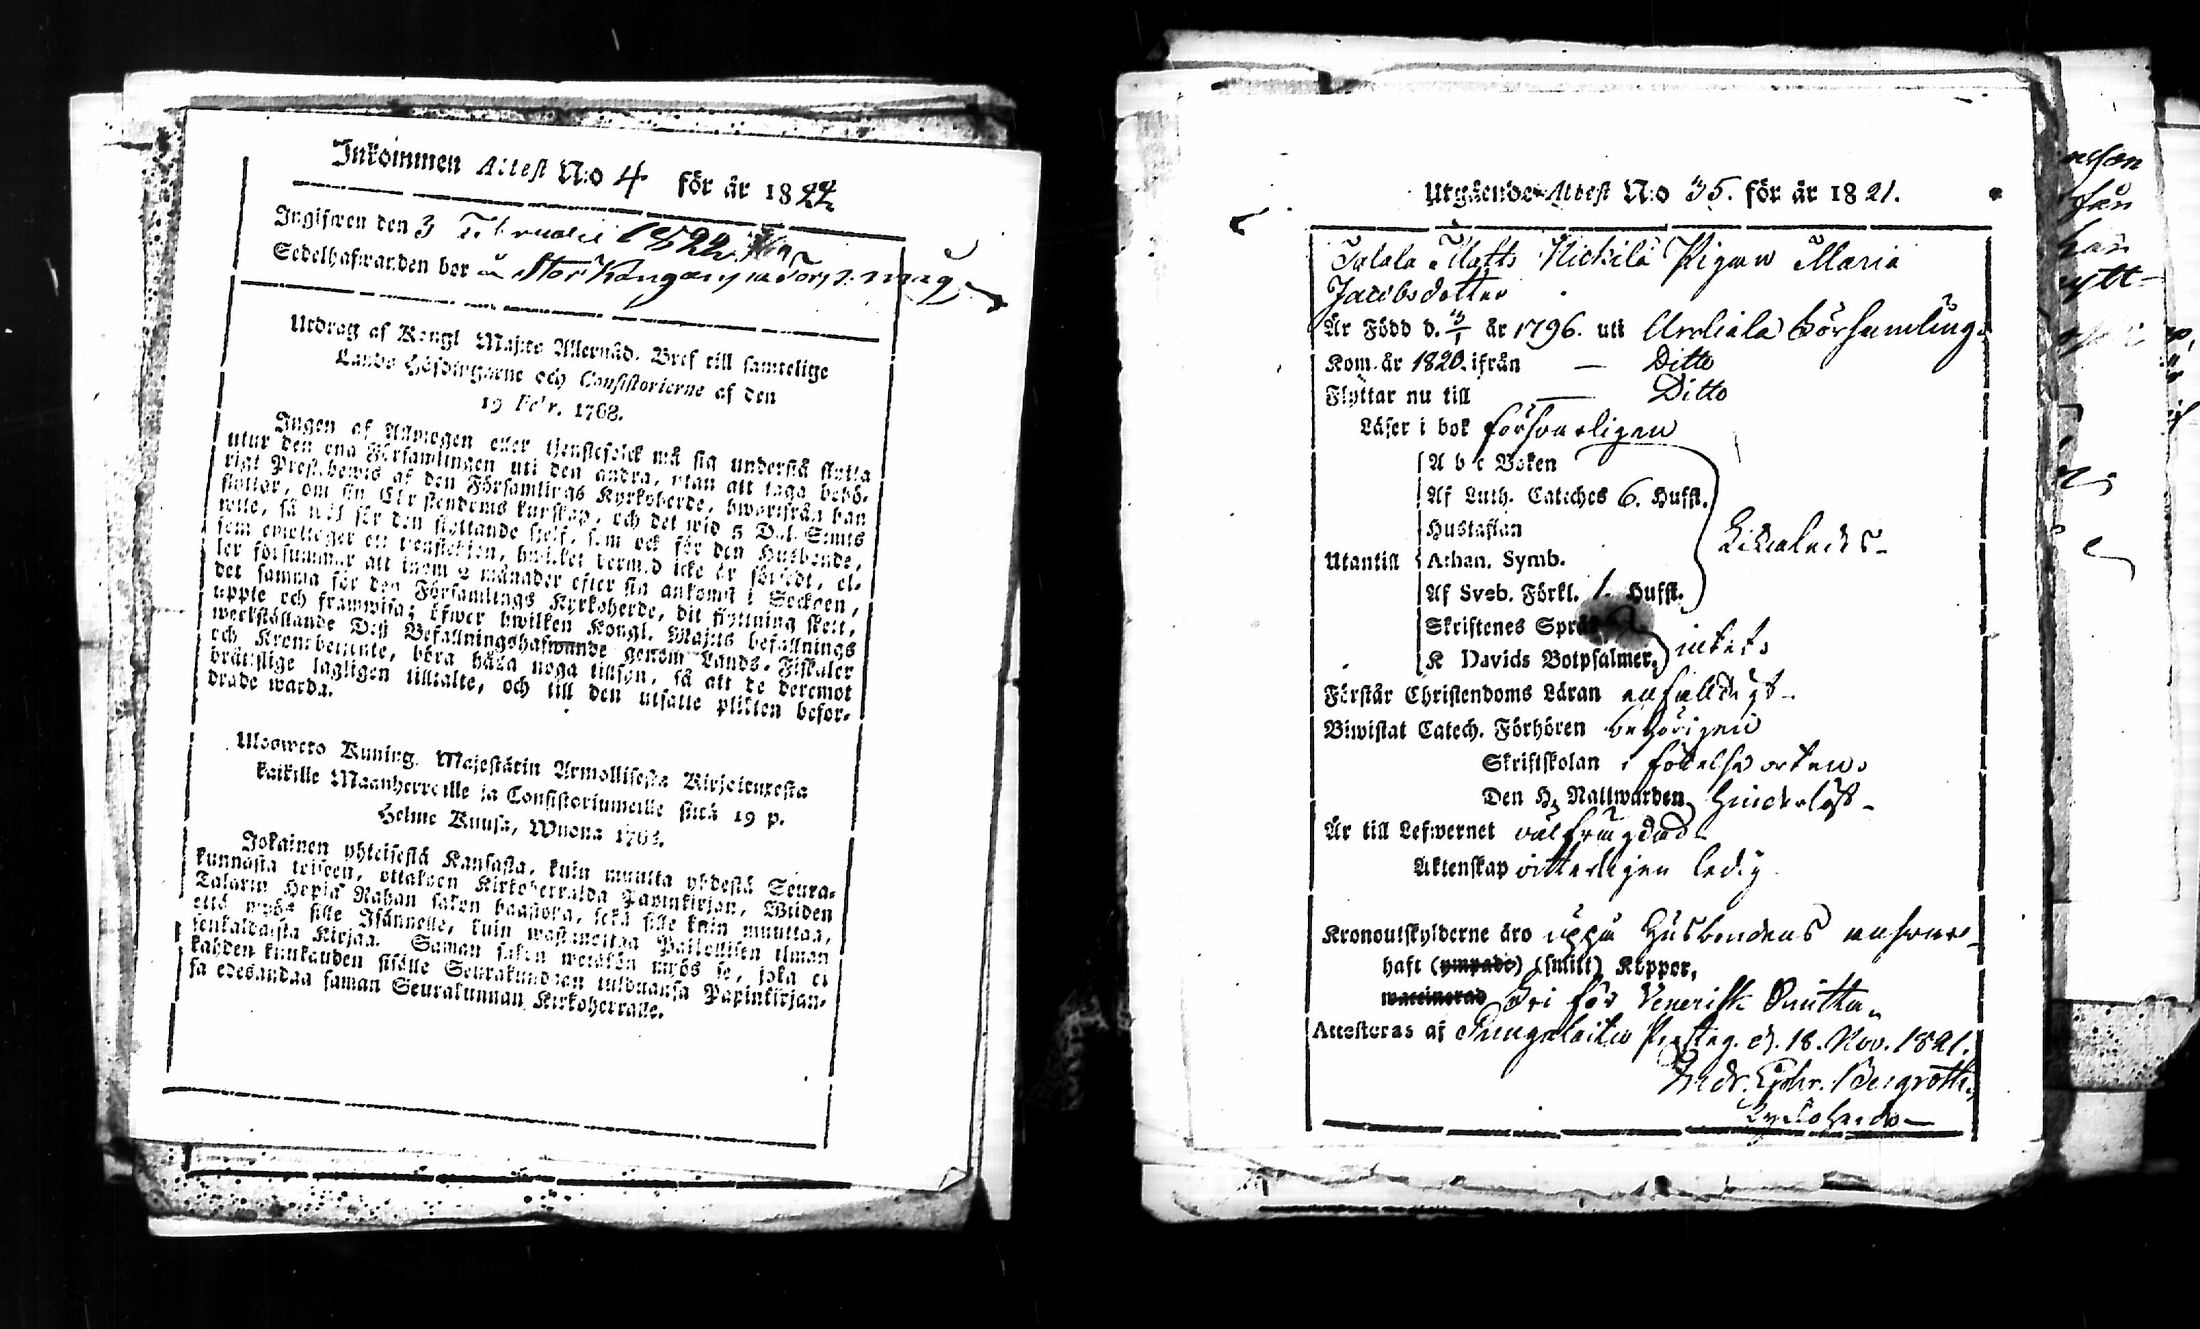 Inkommen Attest N:o 4 för år 1822
Ingifwen den 3 Februarii 1822
Sedelhafwanden bor
Utdrag af Kongl Maj:ts Allernåd. Bref till samtelige
Lands Höfdingarne och Consistorierne af den
19 Febr. 1768.
Ingen af Allmogen eller tjenstefolck må sig understå flytta
utur den ena Församlingen uti den andra, utan att taga behö-
rigt Prestbewis af den Församlings Kyrkoherde, hwarifrån han
flyttar, om sin Christendoms kunskap, och det wid 5 Dal. Smts
wite, så wäl för den flyttande sjelf, som ock för den Husbonde,
som emottager ett tienstehion, hwilket dermed icke är försedt, el-
ler försummar att inom 2 månader efter sin ankomst i Socknen,
det samma för den Församlings Kyrkoherde, dit flyttning skett,
uppte och framwisa; öfwer hwilken Kongl. Maj:ts befallnings
werkställande Deß Befallningshafwande genom Lands-Fiskaler
och Kronobetjente, böra hafa noga tillsyn, så att de deremot
bråttslige lagligen tilltalte, och till den utsatte plikten befor-
drade warda.
Uloswero Kuning. Majestätin Armollisesta Kirjoituxesta
kaikille Maanherroille ja Consistoriumeille siitä 19 p.
Helme Kuusa, Wuona 1768.
Jokainen yhteisestä Kansasta, kuin muutta yhdestä Seura-
kunnasta toiseen, ottakoon Kirkoherralda Papinkirjan, Wiiden
Talarin Hopia Rahan sakon haastolla, sekä sille kuin muuttaa,
että myös sille Isännelle, kuin wastanottaa Palkollisen ilman
senkaldaista Kirjaa. Saman sakon wetäkön myös se, joka ei
kahden kuukauden sisälle Seurakundaan tulduansa Papinkirjan-
sa edesandaa saman Seurakunnan Kirkoherralle.
Utgående Attest N:o 35. för år 1821.
Matts Pigan Maria
Jacobsdotter
Är Född d. år 1796. uti Urdiala Församling.
Kom år 1820. ifrån — Ditto
Flyttar nu till — Ditto
Läser i bok försvarligen
A b c Boken
Af Luth. Cateches 6. Huffst.
Hustaflan
Utantill Athan. Symb.
Af Sveb. Förkl. Huffst.
Likaledes
Skriftenes Språk
K Davids Botpsalmer, intet.
Förstår Christendoms Läran enfalldigt
Biwistat Catech. Förhören behörigen
Skriftskolan i födelse orten.
Den H. Nattwarden hinderlöst
Är till Lefwernet välfrägdad
Äktenskap vitterligen ledig
Kronoutskylderne äro uppå Husbondens answar
haft (ympade) (smitt) Koppor,
waccinerad Fri för Venerisk Smitta
Attesteras af Pungalaitio Prestg. d. 18. Nov. 1821.
Fredr. Ephr. Bergroth